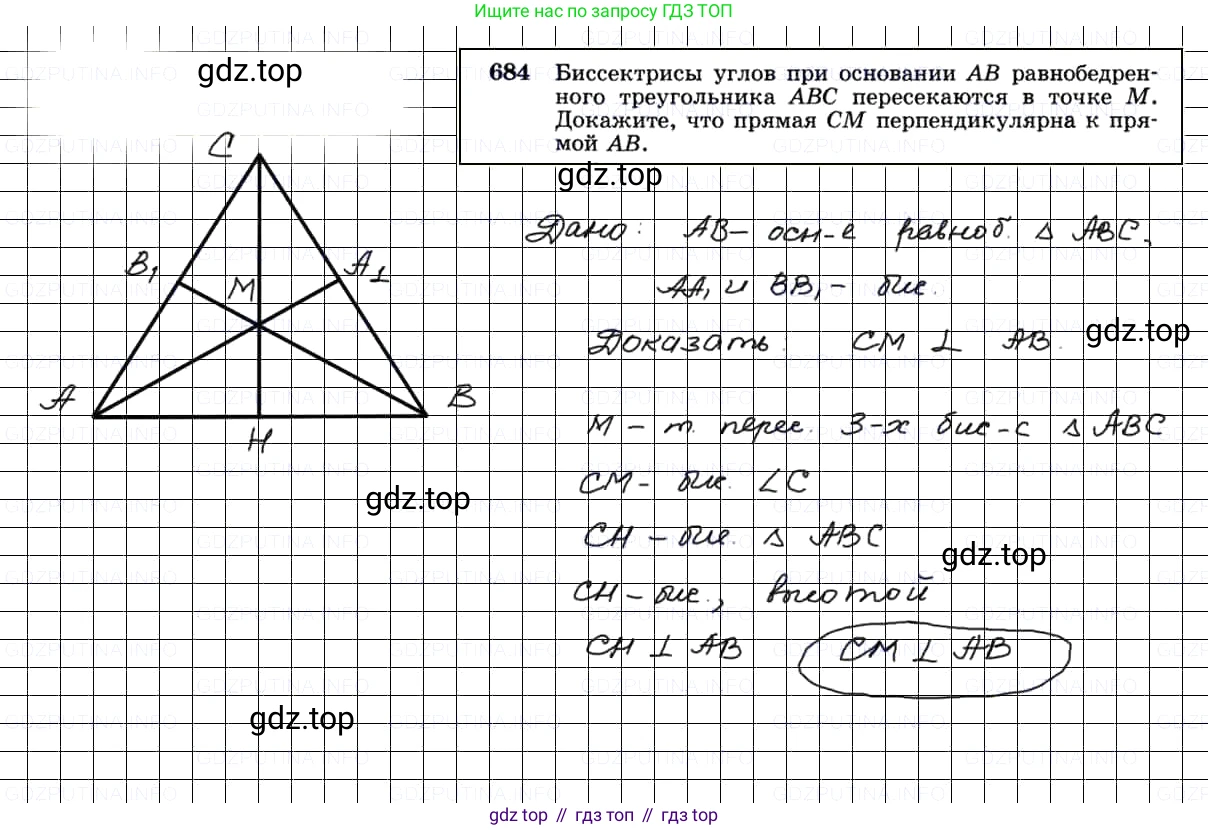 Ищите нас по запросу ГДЗ ТОП
gdz.top
684 Биссектрисы углов при основании AB равнобедрен-
ного треугольника ABC пересекаются в точке M.
Докажите, что прямая CM перпендикулярна к пря-
мой AB.
gdz.top
C
B₁
A₁
M
A
B
H
Дано: AB – осн-е равноб. △ ABC,
AA₁ и BB₁ – бис.
Доказать: CM ⊥ AB.
gdz.top
M – т. перес. 3-х бис-с △ ABC
CM – бис. ∠C
gdz.top
CH – бис. △ ABC
gdz.top
CH – бис., высотой
CH ⊥ AB CM ⊥ AB
gdz.top
GDZPUTINA.INFO
gdz top // гдз топ // гдз top